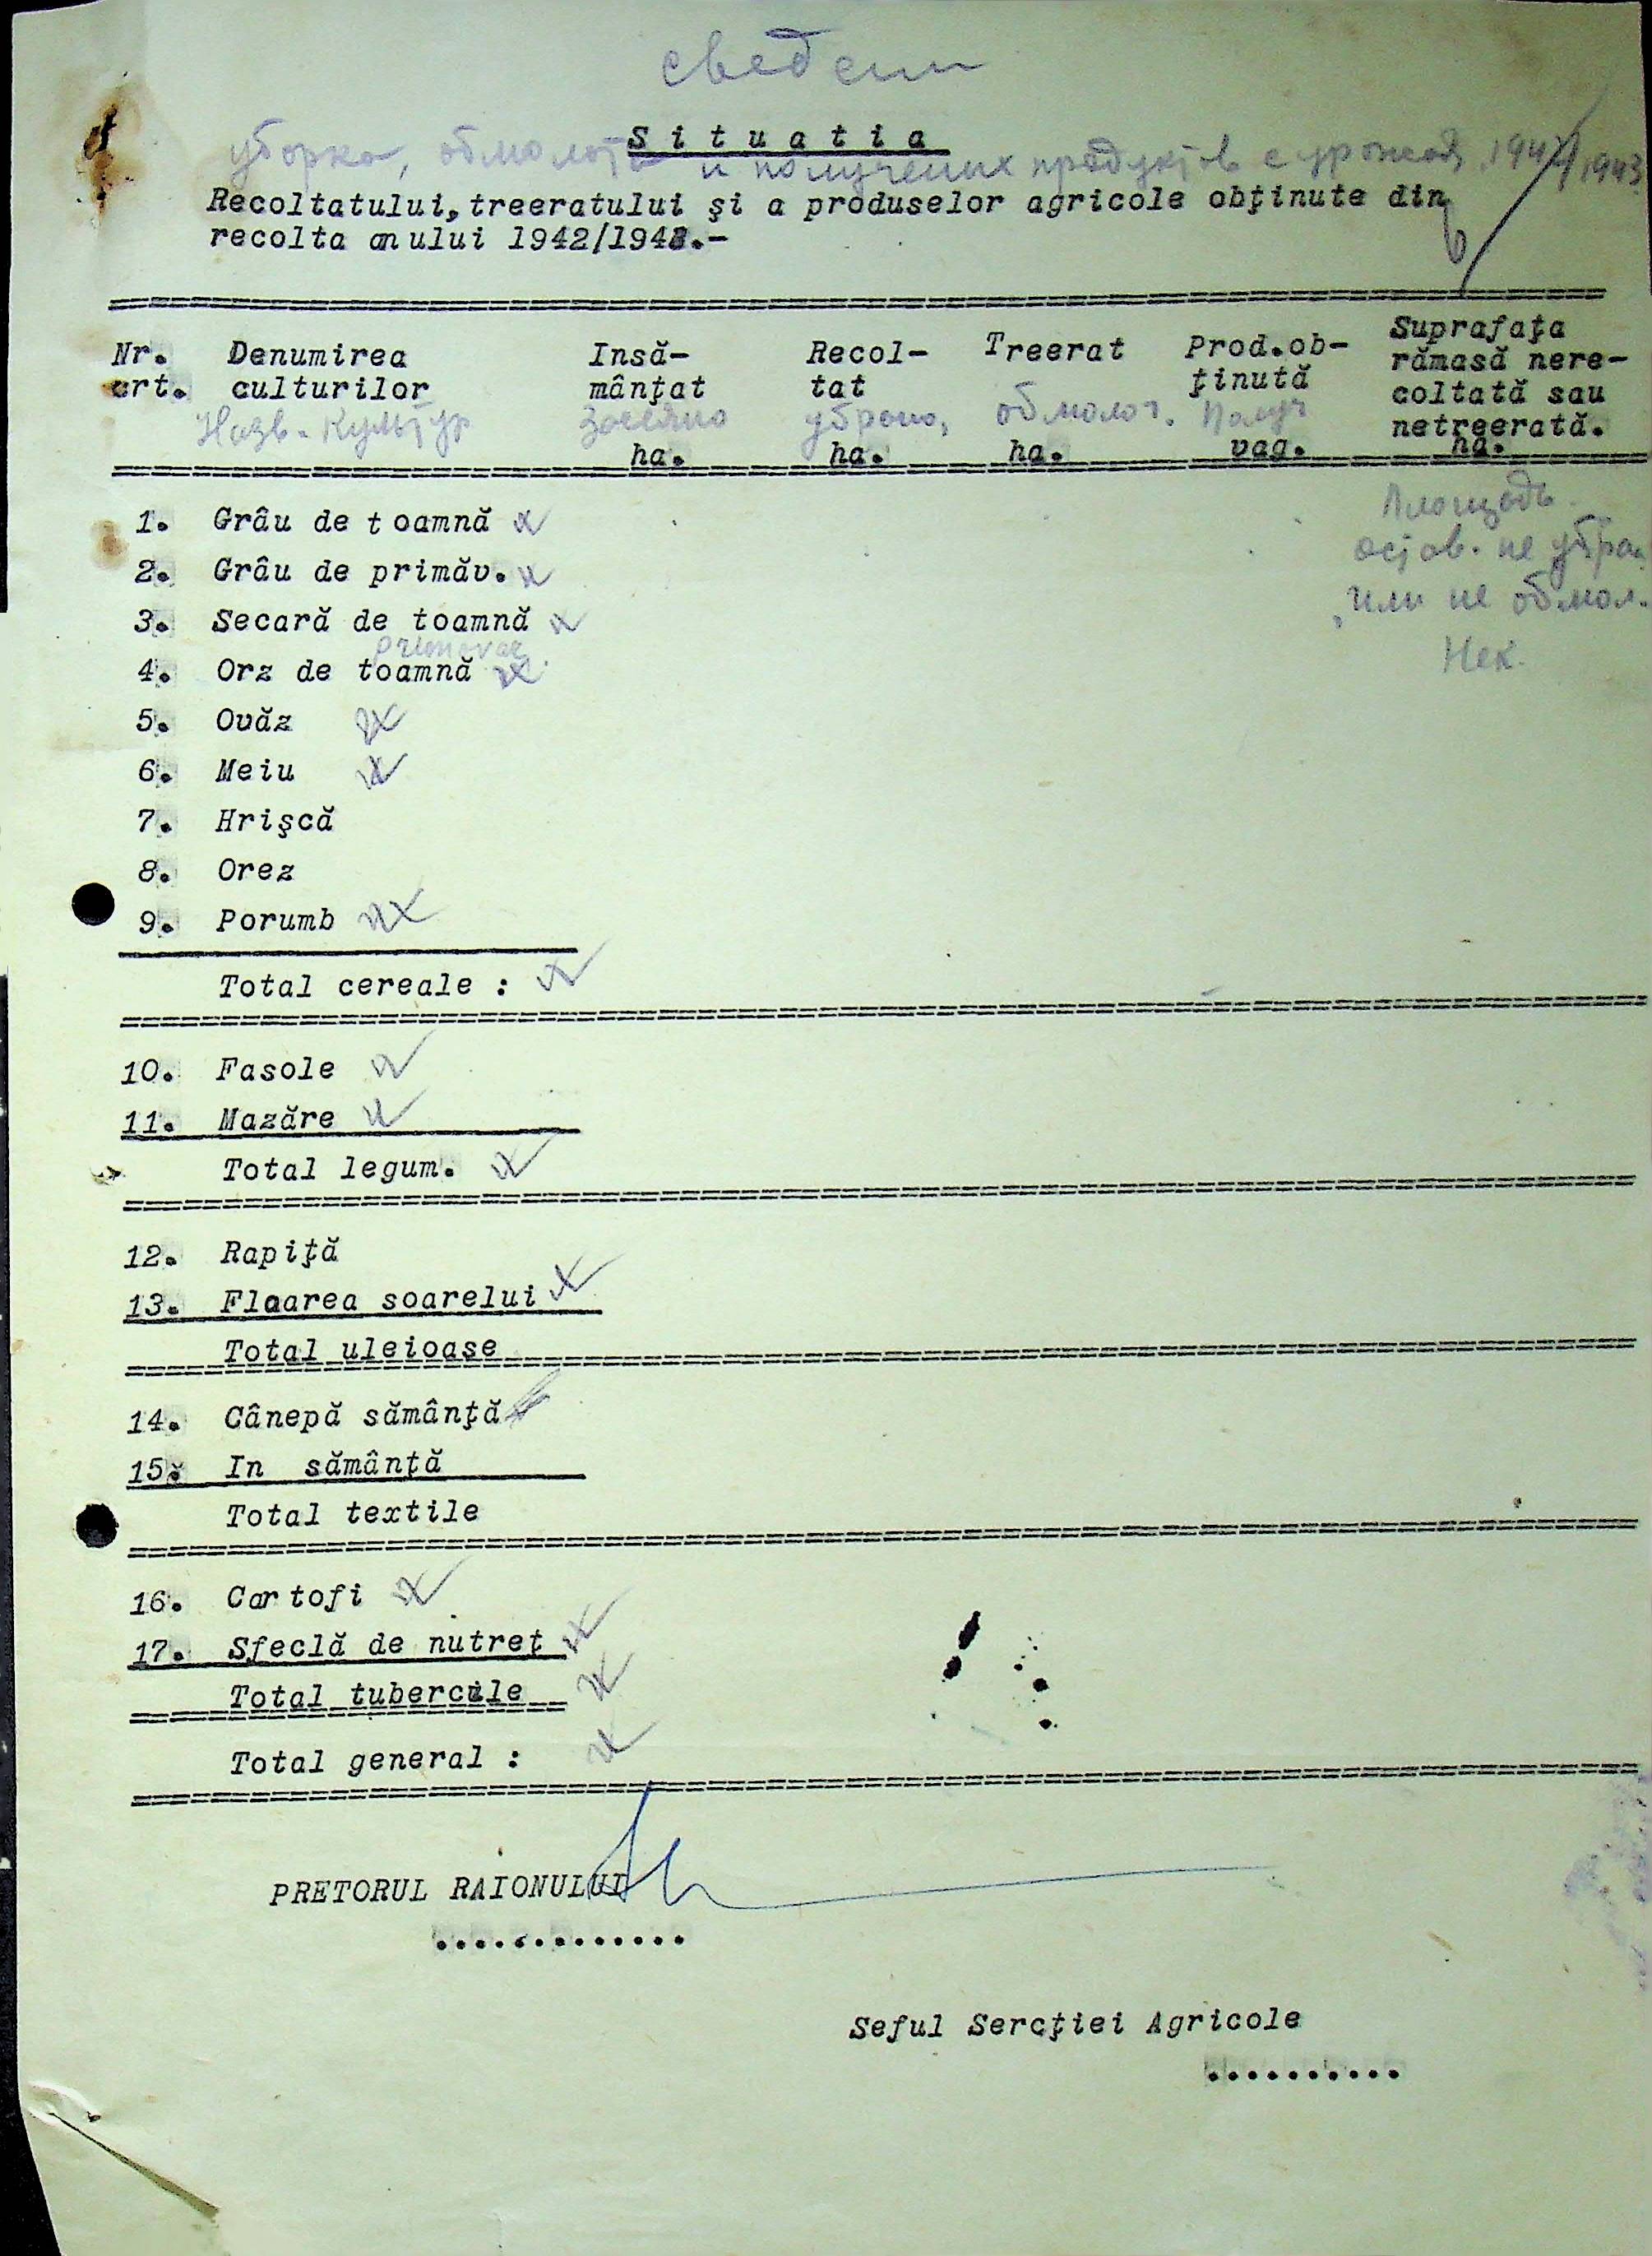 сведени
S i t u a t i a
уборка, обмолоты и полученных продуктов с урожая 1942/1943
Recoltatului, treeratului şi a produselor agricole obţinute din
recolta anului 1942/1943.-
Nr. crt. Denumirea culturilor Insă-mânţat ha. Recol-tat ha. Treerat ha. Prod.ob-ţinută vag. Suprafaţa rămasă nere-coltată sau netreerată. ha.
Назв. Культур засеяно убрано, обмолоч. получ
Площадь
остав. не убран
или не обмол.
Нек.
1. Grâu de toamnă
2. Grâu de primăv.
3. Secară de toamnă
primovar
4. Orz de toamnă
5. Ovăz
6. Meiu
7. Hrişcă
8. Orez
9. Porumb
Total cereale :
10. Fasole
11. Mazăre
Total legum.
12. Rapiţă
13. Flaarea soarelui
Total uleioase
14. Cânepă sămânţă
15. In sămânţă
Total textile
16. Cartofi
17. Sfeclă de nutreţ
Total tubercule
Total general :
PRETORUL RAIONULUI
.............
Seful Sercţiei Agricole
..........